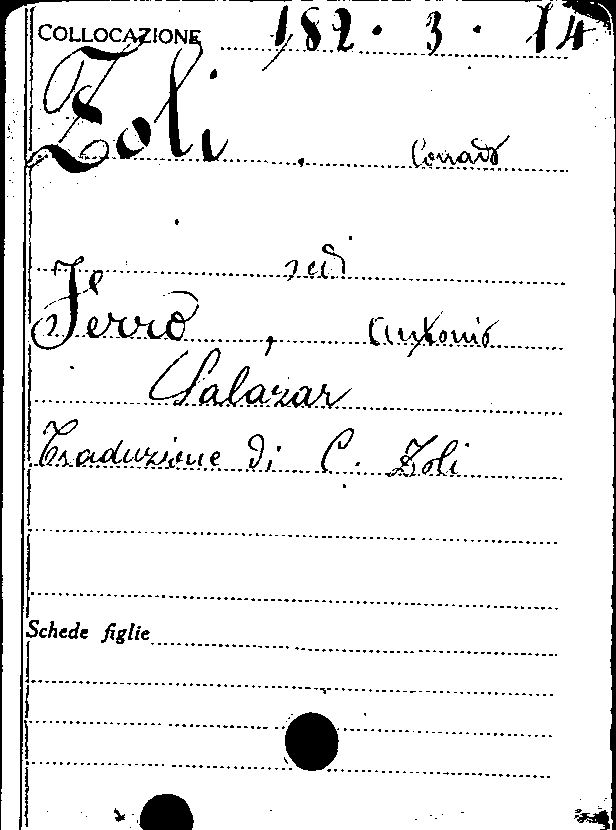 COLLOCAZIONE 182 · 3 · 14
Zoli, Corrado
vedi
Ferro, Antonio
Salazar
Traduzione di C. Zoli
Schede figlie